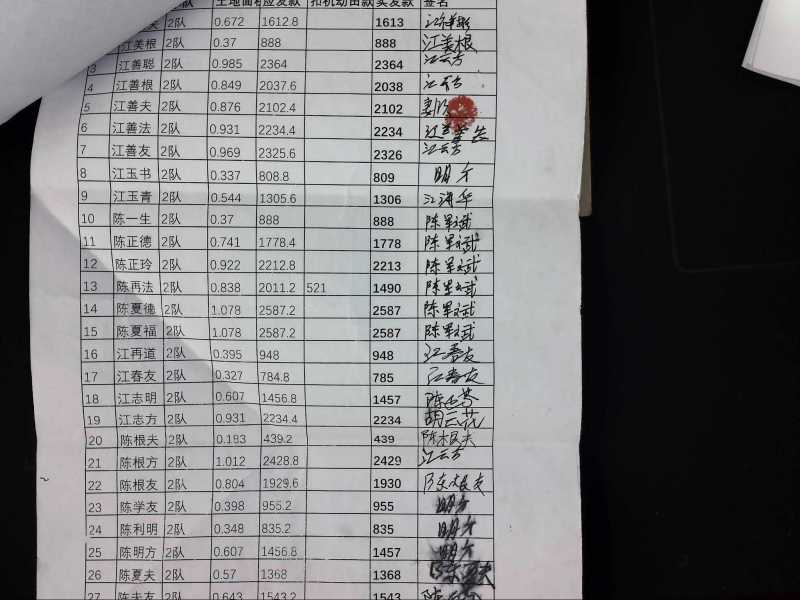 土地面积 应发款 扣机动田款 实发款 签名
2队 0.672 1612.8 1613
江美根 2队 0.37 888 888 江美根
3 江善聪 2队 0.985 2364 2364 江云方
4 江善根 2队 0.849 2037.6 2038 江云方
5 江善夫 2队 0.876 2102.4 2102
6 江善法 2队 0.931 2234.4 2234
7 江善友 2队 0.969 2325.6 2326 江云方
8 江玉书 2队 0.337 808.8 809 明方
9 江玉青 2队 0.544 1305.6 1306 江海华
10 陈一生 2队 0.37 888 888 陈军斌
11 陈正德 2队 0.741 1778.4 1778 陈军斌
12 陈正玲 2队 0.922 2212.8 2213 陈军斌
13 陈再法 2队 0.838 2011.2 521 1490 陈军斌
14 陈夏德 2队 1.078 2587.2 2587 陈军斌
15 陈夏福 2队 1.078 2587.2 2587 陈军斌
16 江再道 2队 0.395 948 948 江春友
17 江春友 2队 0.327 784.8 785 江春友
18 江志明 2队 0.607 1456.8 1457
19 江志方 2队 0.931 2234.4 2234 胡兰花
20 陈根夫 2队 0.183 439.2 439 陈根夫
21 陈根方 2队 1.012 2428.8 2429 江云方
22 陈根友 2队 0.804 1929.6 1930 陈根友
23 陈学友 2队 0.398 955.2 955 明方
24 陈利明 2队 0.348 835.2 835 明方
25 陈明方 2队 0.607 1456.8 1457 明方
26 陈夏夫 2队 0.57 1368 1368 陈夏夫
27 陈未友 2队 0.643 1543.2 1543